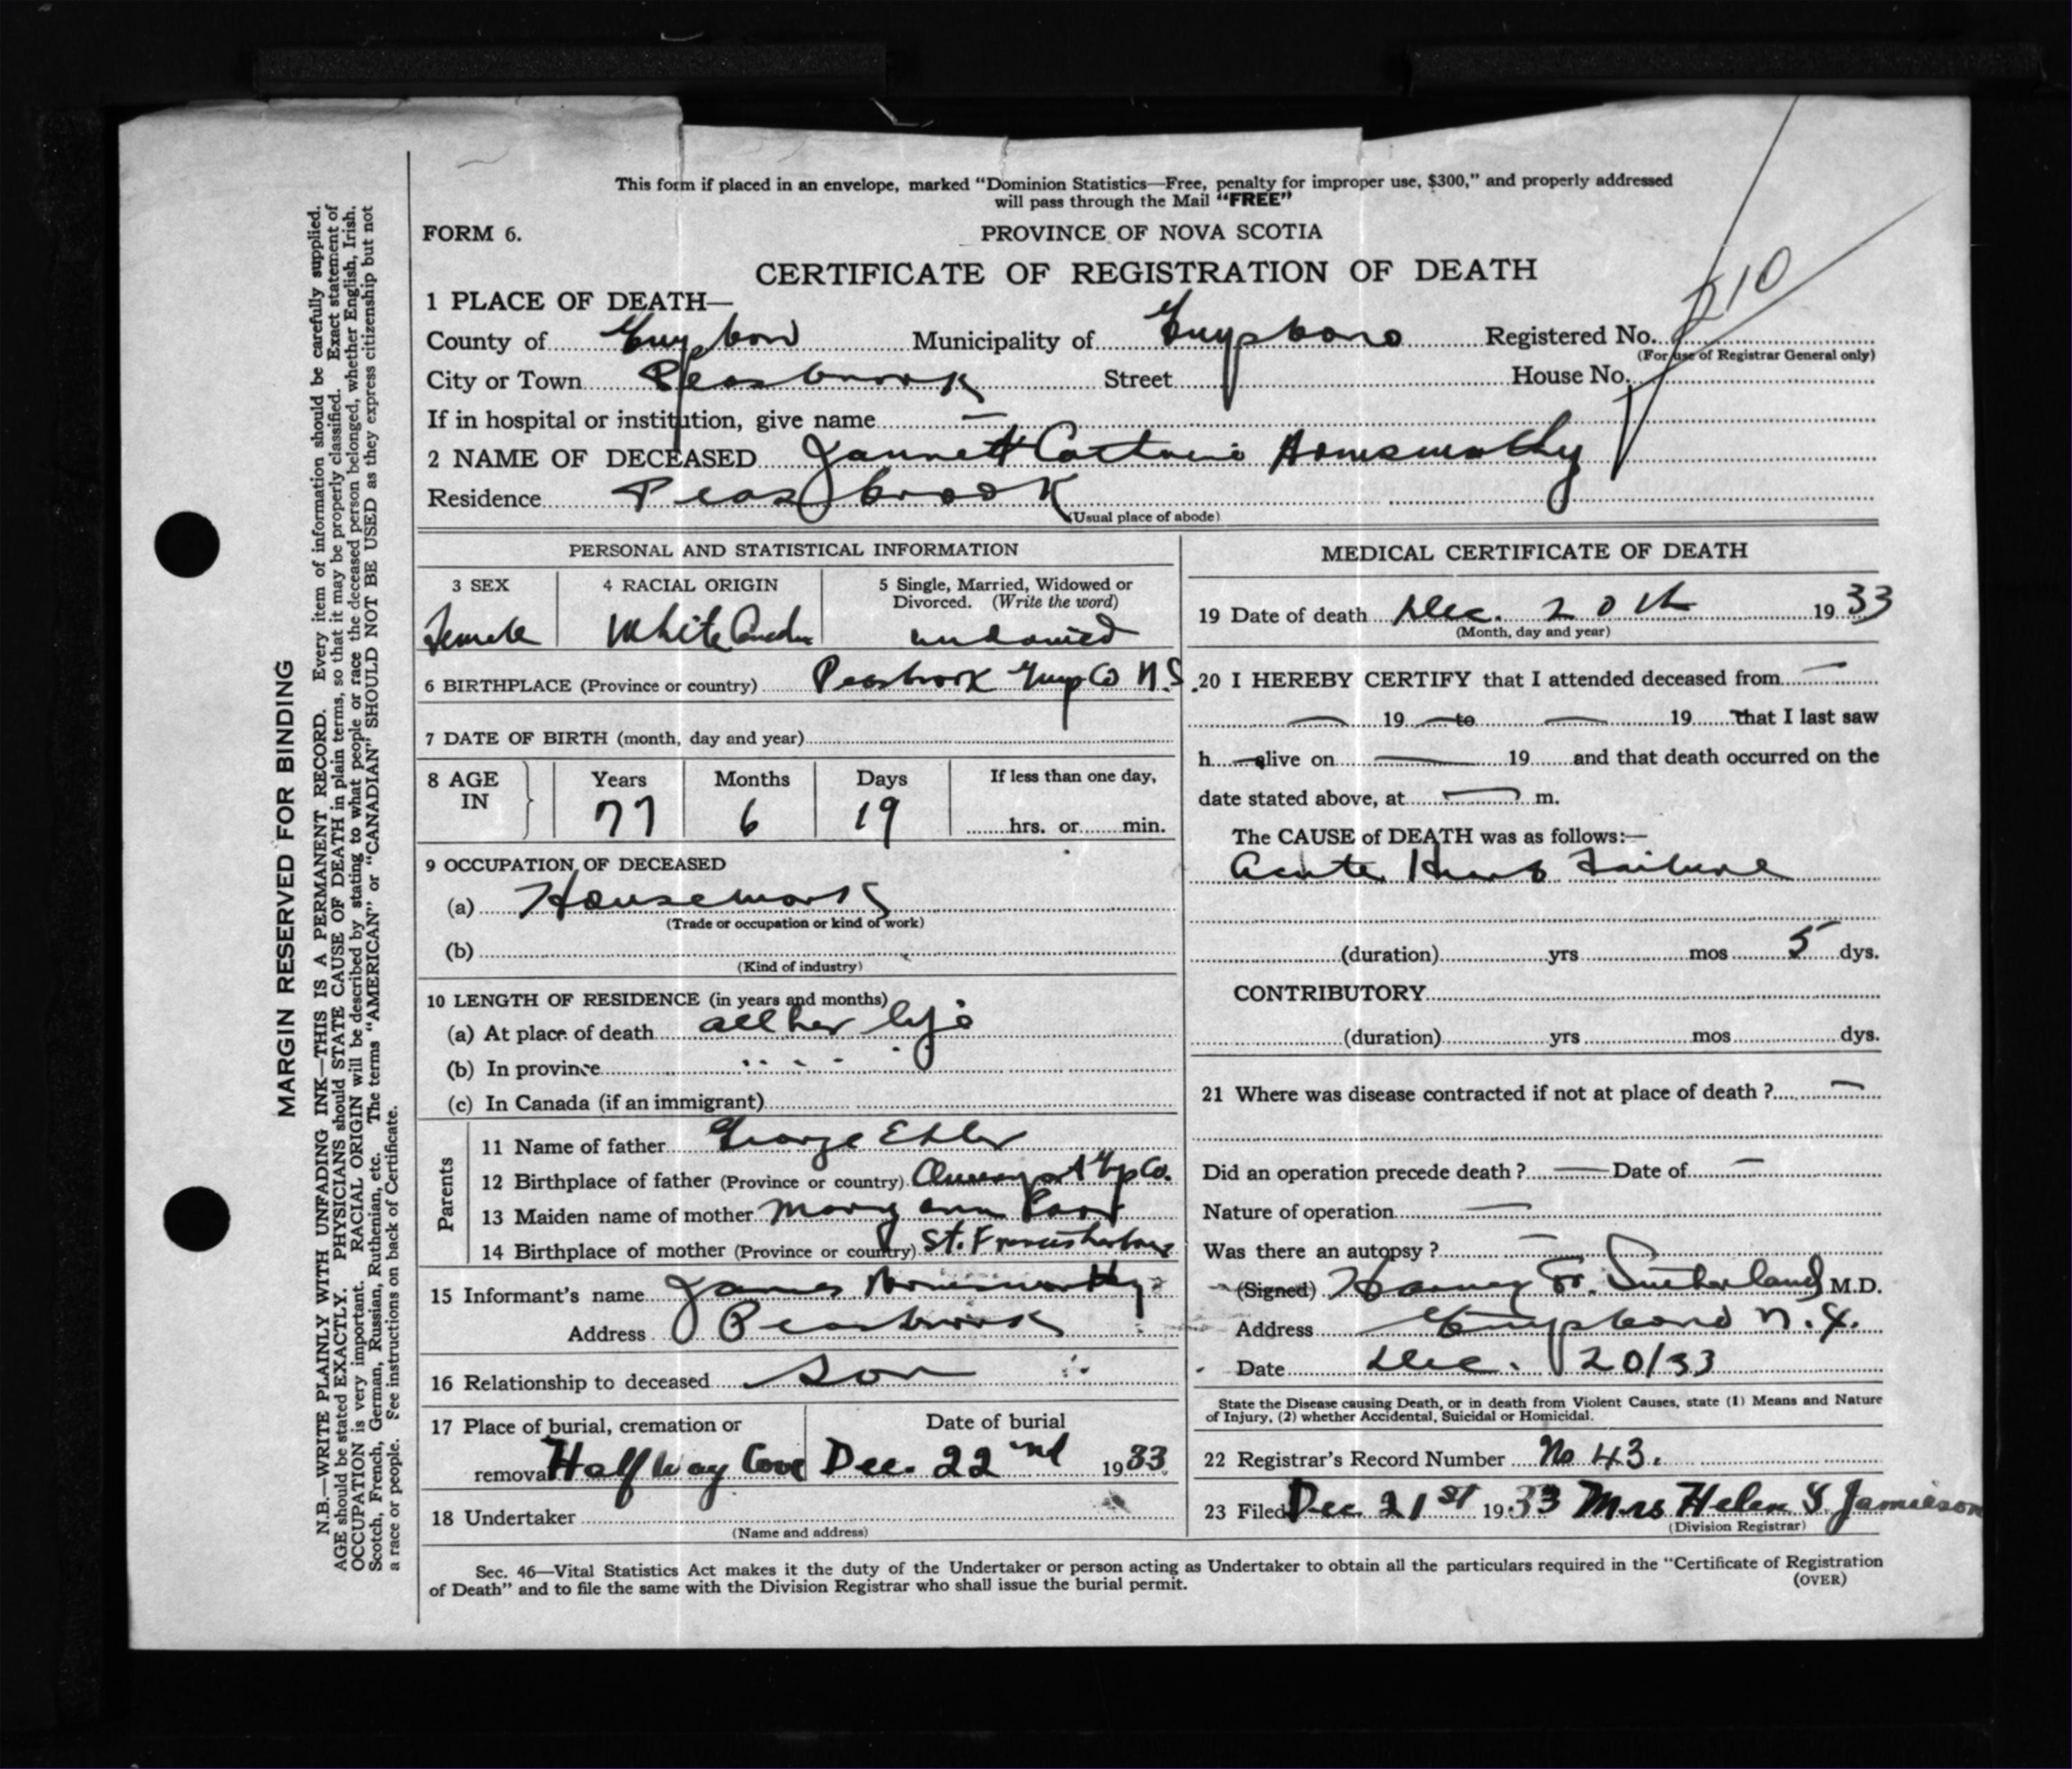 This form if placed in an envelope, marked "Dominion Statistics—Free, penalty for improper use, $300," and properly addressed
will pass through the Mail "FREE"
FORM 6.
PROVINCE OF NOVA SCOTIA
CERTIFICATE OF REGISTRATION OF DEATH
1 PLACE OF DEATH—
County of Guysboro Municipality of Guysboro Registered No. 210
(For use of Registrar General only)
City or Town Peasbrook Street House No.
If in hospital or institution, give name —
2 NAME OF DECEASED Jannett Armsworthy
Residence Peas brook
(Usual place of abode)
PERSONAL AND STATISTICAL INFORMATION
3 SEX
Female
4 RACIAL ORIGIN
White
5 Single, Married, Widowed or
Divorced. (Write the word)
6 BIRTHPLACE (Province or country) Peasbrook Guys Co N.S.
7 DATE OF BIRTH (month, day and year)
8 AGE IN
Years Months Days If less than one day,
77 6 19 hrs. or min.
9 OCCUPATION OF DECEASED
(a) Housework
(Trade or occupation or kind of work)
(b)
(Kind of industry)
10 LENGTH OF RESIDENCE (in years and months)
(a) At place of death all her life
(b) In province " " " "
(c) In Canada (if an immigrant)
Parents
11 Name of father George Ehler
12 Birthplace of father (Province or country) Guys Co.
13 Maiden name of mother Mary ann
14 Birthplace of mother (Province or country) St. Francis harbour
15 Informant's name James Armsworthy
Address Peasbrook
16 Relationship to deceased Son
17 Place of burial, cremation or
removal Half Way Cove
Date of burial
Dec. 22nd 1933
18 Undertaker
(Name and address)
MEDICAL CERTIFICATE OF DEATH
19 Date of death Dec. 20th 1933
(Month, day and year)
20 I HEREBY CERTIFY that I attended deceased from —
— 19 — to — 19 that I last saw
h — alive on — 19 and that death occurred on the
date stated above, at — m.
The CAUSE of DEATH was as follows:—
Acute Heart Failure
(duration) yrs mos 5 dys.
CONTRIBUTORY
(duration) yrs mos dys.
21 Where was disease contracted if not at place of death ? —
Did an operation precede death ? — Date of —
Nature of operation —
Was there an autopsy ? —
(Signed) Sutherland M.D.
Address Guysboro N.S.
Date Dec. 20/33
State the Disease causing Death, or in death from Violent Causes, state (1) Means and Nature
of Injury, (2) whether Accidental, Suicidal or Homicidal.
22 Registrar's Record Number No 43.
23 Filed Dec 21st 1933 Mrs Helen Jamieson
(Division Registrar)
Sec. 46—Vital Statistics Act makes it the duty of the Undertaker or person acting as Undertaker to obtain all the particulars required in the "Certificate of Registration
of Death" and to file the same with the Division Registrar who shall issue the burial permit.
(OVER)
MARGIN RESERVED FOR BINDING
N.B.—WRITE PLAINLY WITH UNFADING INK—THIS IS A PERMANENT RECORD. Every item of information should be carefully supplied.
AGE should be stated EXACTLY. PHYSICIANS should STATE CAUSE OF DEATH in plain terms, so that it may be properly classified. Exact statement of
OCCUPATION is very important. RACIAL ORIGIN will be described by stating to what people or race the deceased person belonged, whether English, Irish,
Scotch, French, German, Russian, Ruthenian, etc. The terms "AMERICAN" or "CANADIAN" SHOULD NOT BE USED as they express citizenship but not
a race or people. See instructions on back of Certificate.